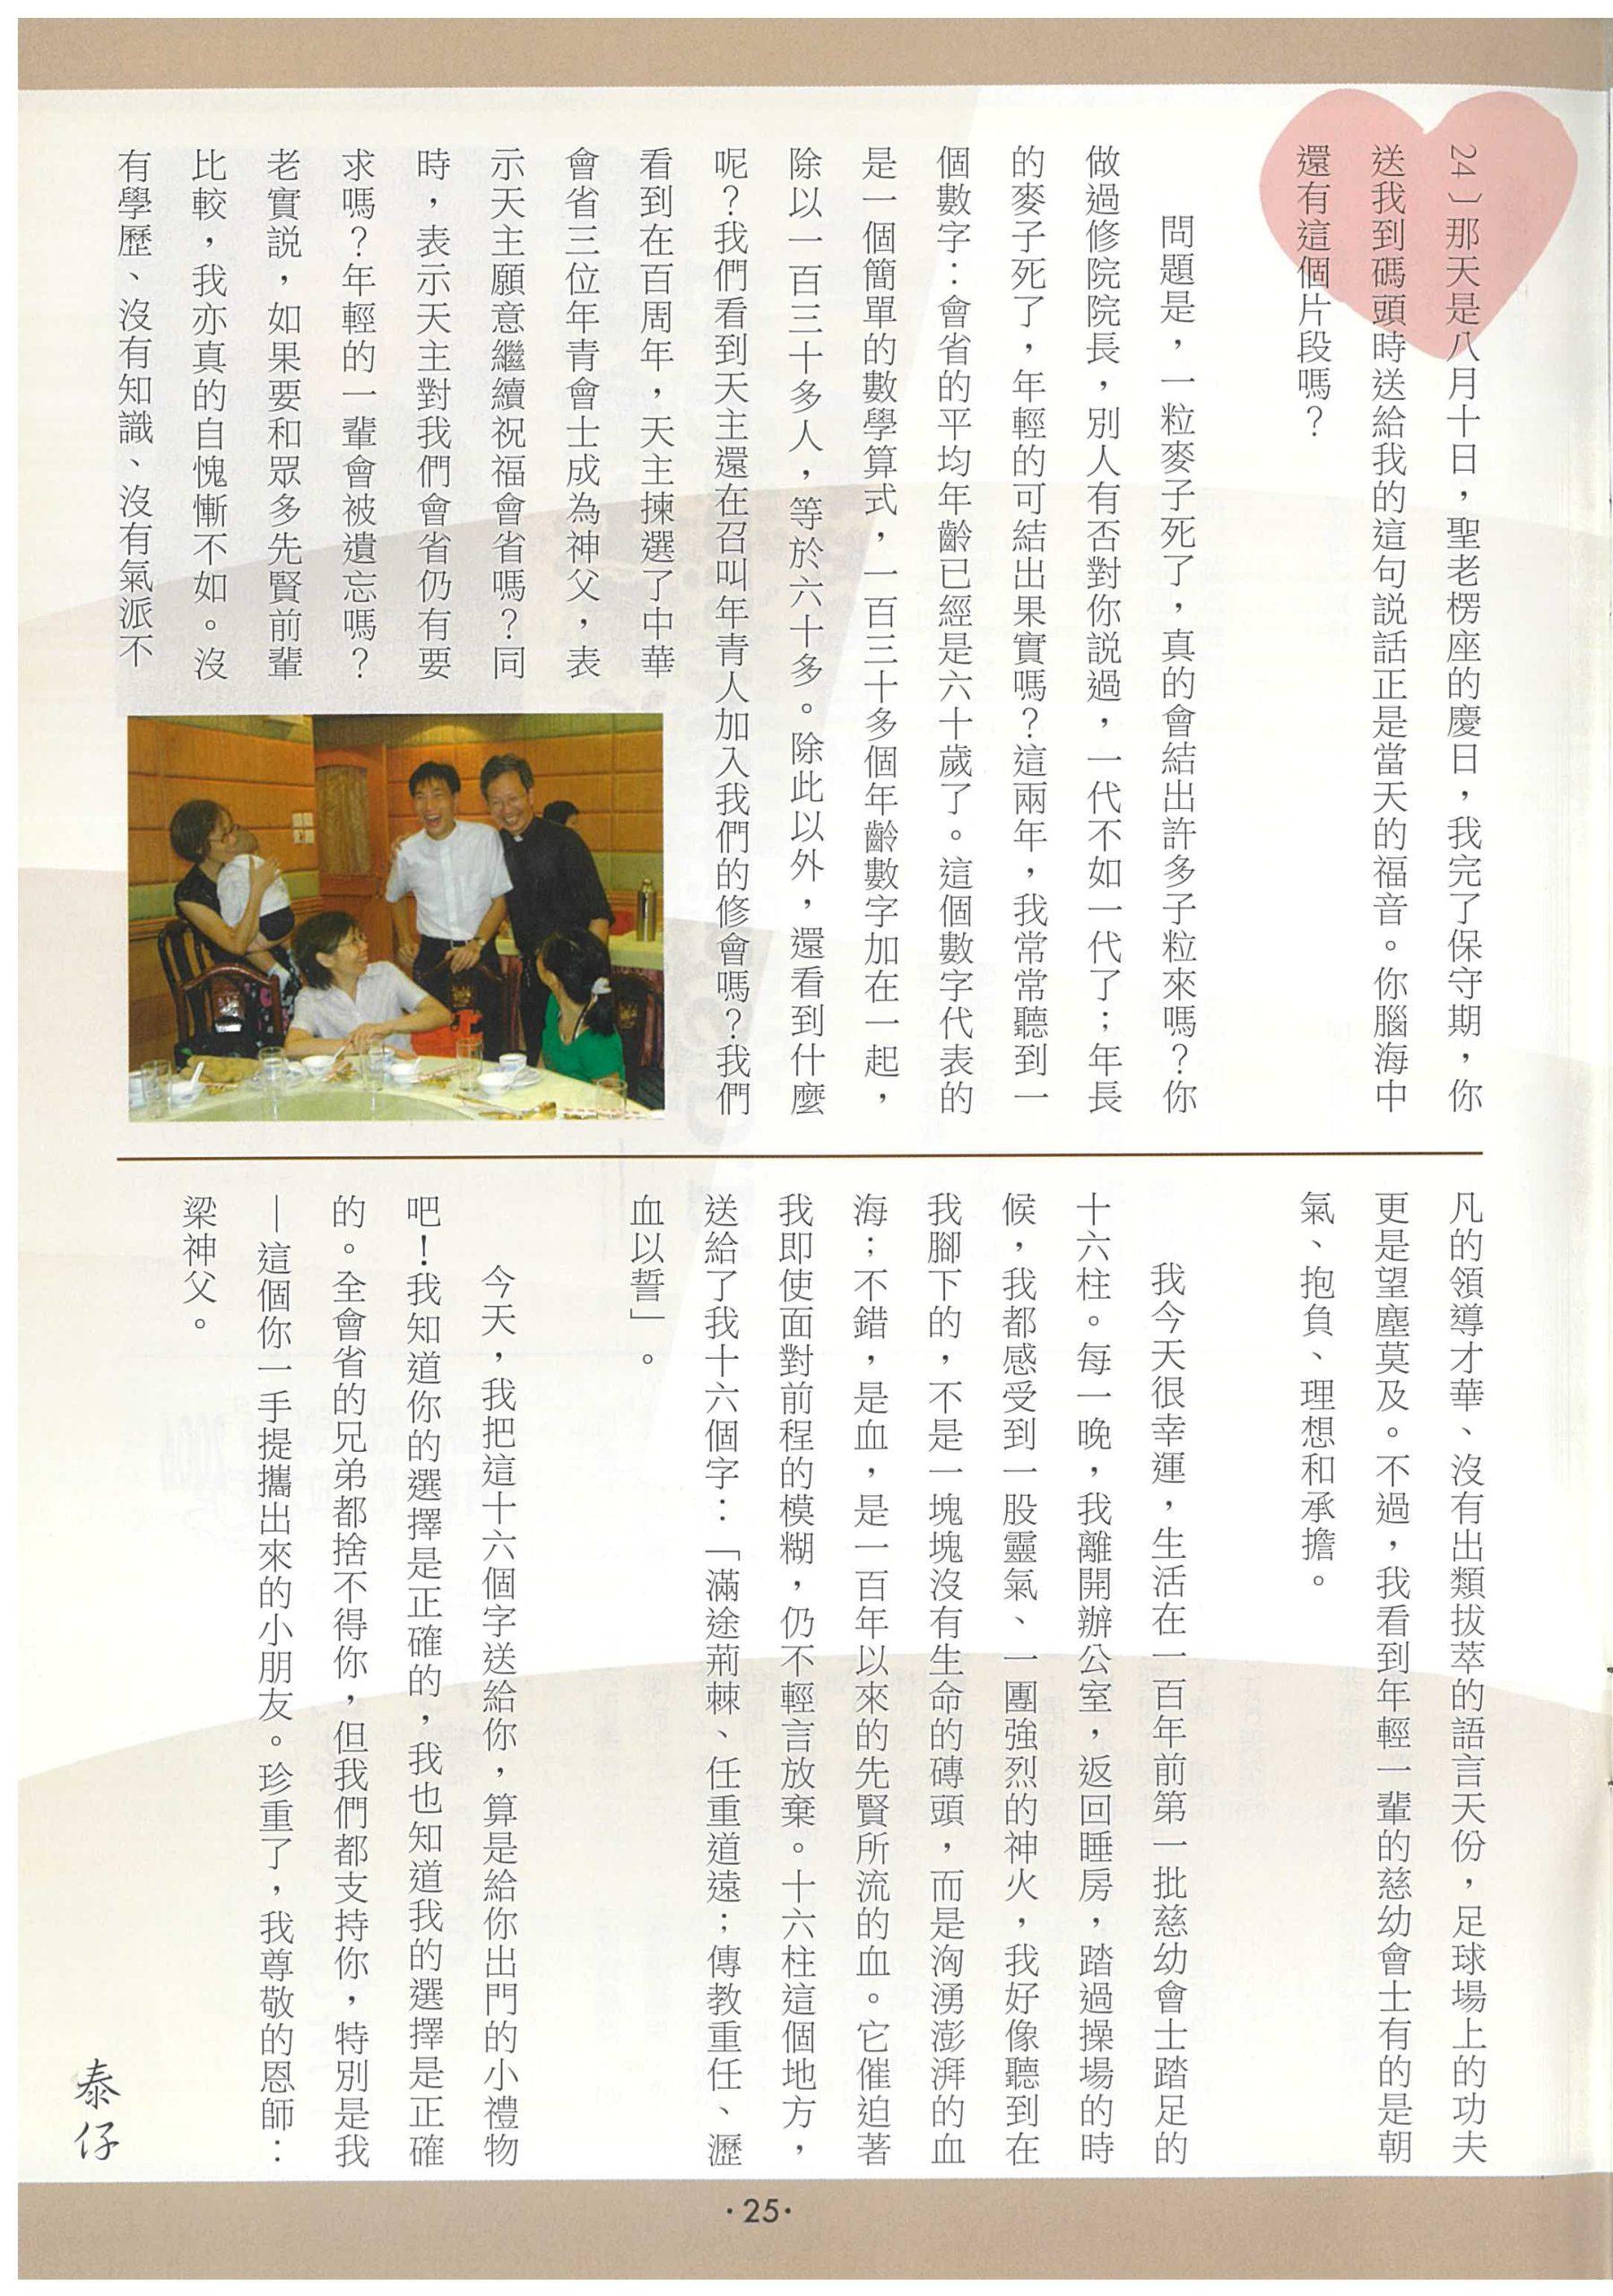 24〕那天是八月十日，聖老楞座的慶日，我完了保守期，你
送我到碼頭時送給我的這句説話正是當天的福音。你腦海中
還有這個片段嗎？
問題是，一粒麥子死了，真的會結出許多子粒來嗎？你
做過修院院長，別人有否對你説過，一代不如一代了；年長
的麥子死了，年輕的可結出果實嗎？這兩年，我常常聽到一
個數字：會省的平均年齡已經是六十歲了。這個數字代表的
是一個簡單的數學算式，一百三十多個年齡數字加在一起，
除以一百三十多人，等於六十多。除此以外，還看到什麼
呢？我們看到天主還在召叫年青人加入我們的修會嗎？我們
看到在百周年，天主揀選了中華
會省三位年青會士成為神父，表
示天主願意繼續祝福會省嗎？同
時，表示天主對我們會省仍有要
求嗎？年輕的一輩會被遺忘嗎？
老實説，如果要和眾多先賢前輩
比較，我亦真的自愧慚不如。沒
有學歷、沒有知識、沒有氣派不
凡的領導才華、沒有出類拔萃的語言天份，足球場上的功夫
更是望塵莫及。不過，我看到年輕一輩的慈幼會士有的是朝
氣、抱負、理想和承擔。
我今天很幸運，生活在一百年前第一批慈幼會士踏足的
十六柱。每一晚，我離開辦公室，返回睡房，踏過操場的時
候，我都感受到一股靈氣、一團強烈的神火，我好像聽到在
我腳下的，不是一塊塊沒有生命的磚頭，而是洶湧澎湃的血
海；不錯，是血，是一百年以來的先賢所流的血。它催迫著
我即使面對前程的模糊，仍不輕言放棄。十六柱這個地方，
送給了我十六個字：「滿途荊棘、任重道遠；傳教重任、瀝
血以誓」。
今天，我把這十六個字送給你，算是給你出門的小禮物
吧！我知道你的選擇是正確的，我也知道我的選擇是正確
的。全會省的兄弟都捨不得你，但我們都支持你，特別是我
—這個你一手提攜出來的小朋友。珍重了，我尊敬的恩師：
梁神父。
泰仔
·25·